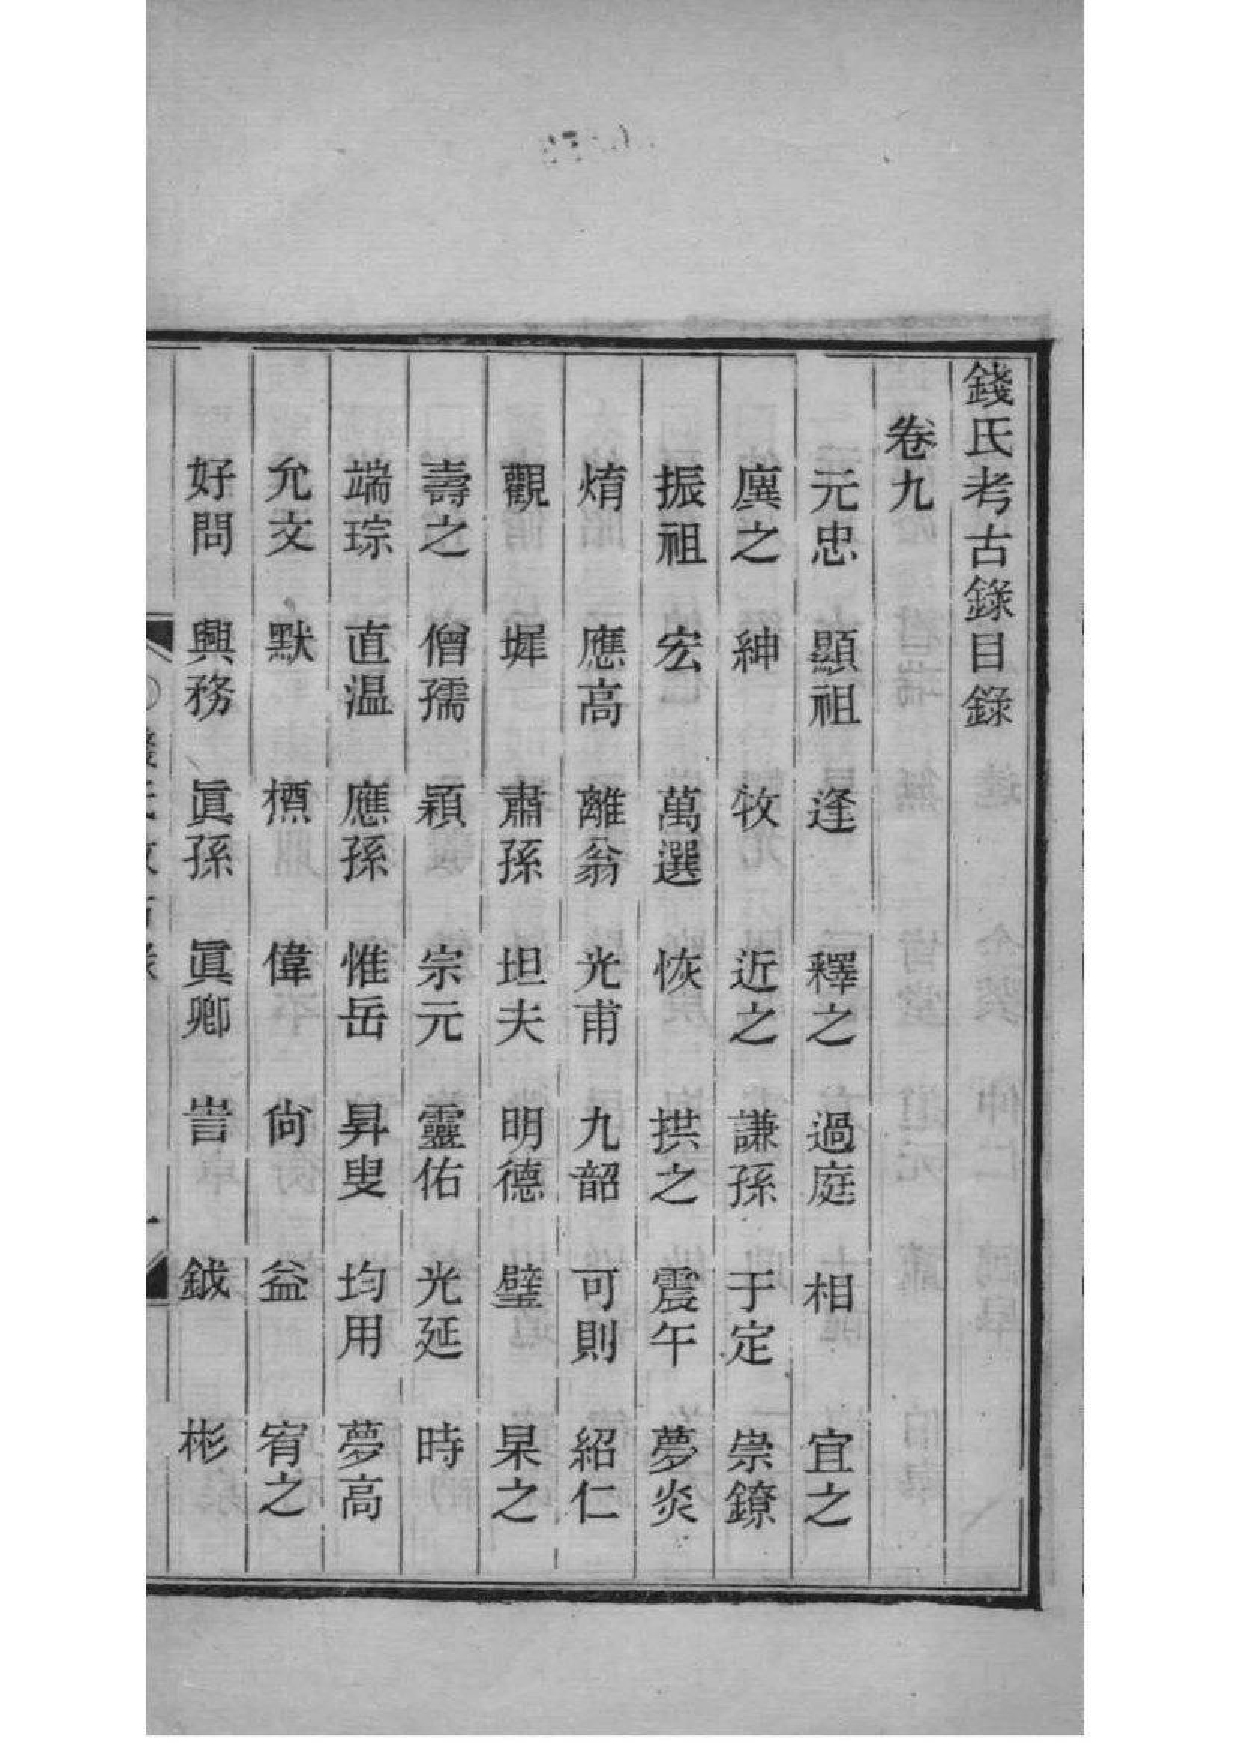 錢氏考古錄目錄
卷九
元忠 顯祖 逢 釋之 過庭 相 宜之
廙之 紳 牧 近之 謙孫 于定 崇鐐
振祖 宏 萬選 恢 拱之 震午 夢炎
焴 應高 離翁 光甫 九韶 可則 紹仁
觀 墀 肅孫 坦夫 明德 璧 杲之
壽之 僧孺 穎 宗元 靈佑 光延 時
端琮 直温 應孫 惟岳 昇叟 均用 夢高
允文 默 槱 偉 尙 益 宥之
好問 興務 眞孫 眞卿 訔 鉞 彬